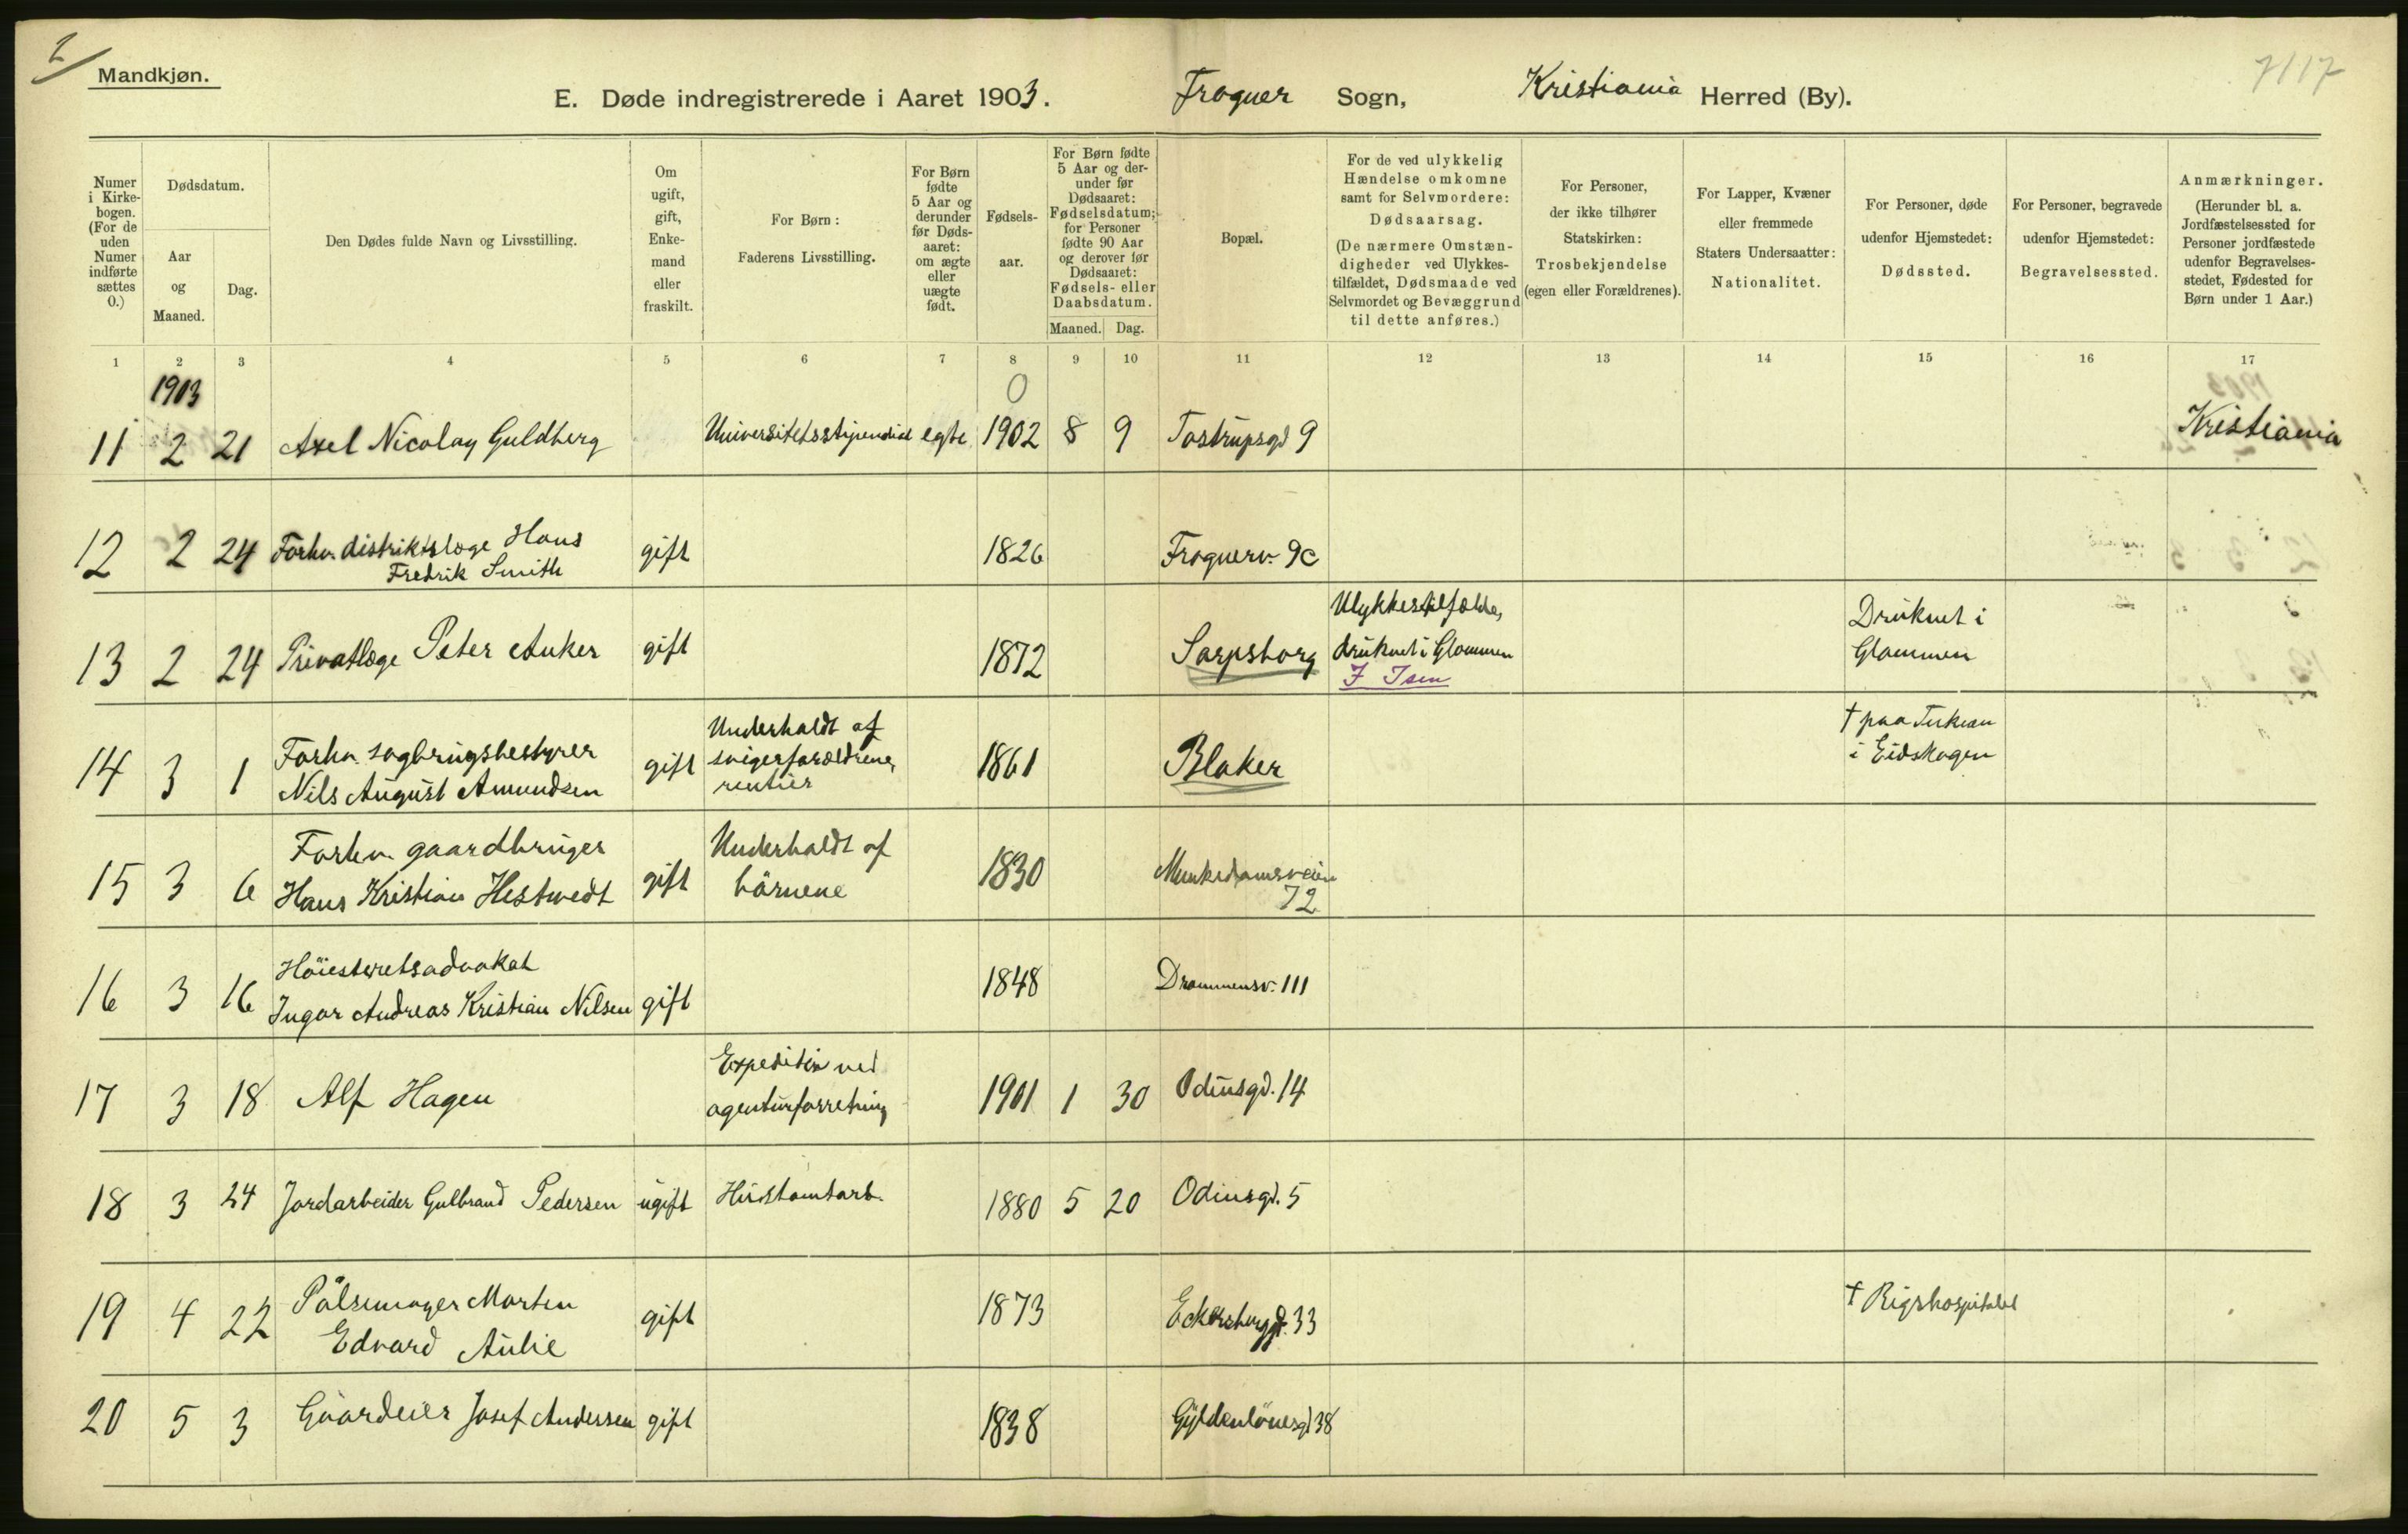 2
Mandkjøn.
7117
E. Døde indregistrerede i Aaret 1903. Frogner Sogn, Kristiania Herred (By).
Numer i Kirke-bogen. (For de uden Numer indførte sættes 0.)
Dødsdatum.
Aar og Maaned.
Dag.
Den Dødes fulde Navn og Livsstilling.
Om ugift, gift, Enke-mand eller fraskilt.
For Børn: Faderens Livsstilling.
For Børn fødte 5 Aar og derunder før Døds-aaret: om ægte eller uægte født.
Fødsels-aar.
For Børn fødte 5 Aar og der-under før Dødsaaret: Fødselsdatum; for Personer fødte 90 Aar og derover før Dødsaaret: Fødsels- eller Daabsdatum.
Maaned. Dag.
Bopæl.
For de ved ulykkelig Hændelse omkomne samt for Selvmordere: Dødsaarsag. (De nærmere Omstæn-digheder ved Ulykkes-tilfældet, Dødsmaade ved Selvmordet og Bevæggrund til dette anføres.)
For Personer, der ikke tilhører Statskirken: Trosbekjendelse (egen eller Forældrenes).
For Lapper, Kvæner eller fremmede Staters Undersaatter: Nationalitet.
For Personer, døde udenfor Hjemstedet: Dødssted.
For Personer, begravede udenfor Hjemstedet: Begravelsessted.
Anmærkninger. (Herunder bl. a. Jordfæstelsessted for Personer jordfæstede udenfor Begravelses-stedet, Fødested for Børn under 1 Aar.)
1 2 3 4 5 6 7 8 9 10 11 12 13 14 15 16 17
1903
0
11 2 21 Axel Nicolay Guldberg Universitetsstipendiat egte 1902 8 9 Tostrupsgd 9 Kristiania
12 2 24 Forhv. distriktslæge Hans
Fredrik Smith gift 1826 Frognerv. 9c
13 2 24 Privatlæge Peter Anker gift 1872 Sarpsborg Ulykkestilfælde,
druknet i Glommen
Druknet i
Glommen
14 3 1 Forhv. sagbrugsbestyrer
Nils August Amundsen gift Underholdt af
svigerforældrene,
rentier 1861 Blaker
i Eidskogen
15 3 6 Forhv. gaardbruger
Hans Kristian Hestvedt gift Underholdt af
börnene 1830 Munkedamsveien
72
16 3 16 Höiesteretsadvokat
Ingar Andreas Kristian Nilsen gift 1848 Drammensv. 111
17 3 18 Alf Hagen Expeditör ved
agenturforretning 1901 1 30 Odinsgd. 14
18 3 24 Jordarbeider Gulbrand Pedersen ugift Hustomtarb. 1880 5 20 Odinsgd. 5
19 4 22 Pölsemager Morten
Edvard Aulie gift 1873 Eckersbergsgd. 33 † Rigshospitalet
20 5 3 Gaardeier Josef Andersen gift 1838 Gyldenlövesgd 38